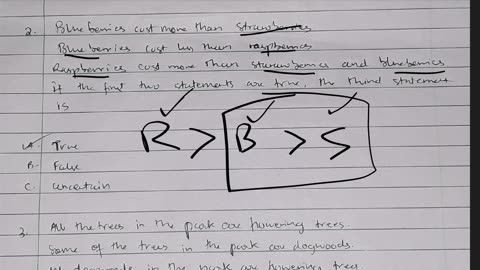 2. Blueberries cost more than strawberries
Blueberries cost less than raspberries
Raspberries cost more than strawberries and blueberries
If the first two statements are true, the third statement
is
R > B > S
A. True
B. False
C. uncertain
3. All the trees in the park are flowering trees.
Some of the trees in the park are dogwoods.
dogwoods in the park are flowering trees